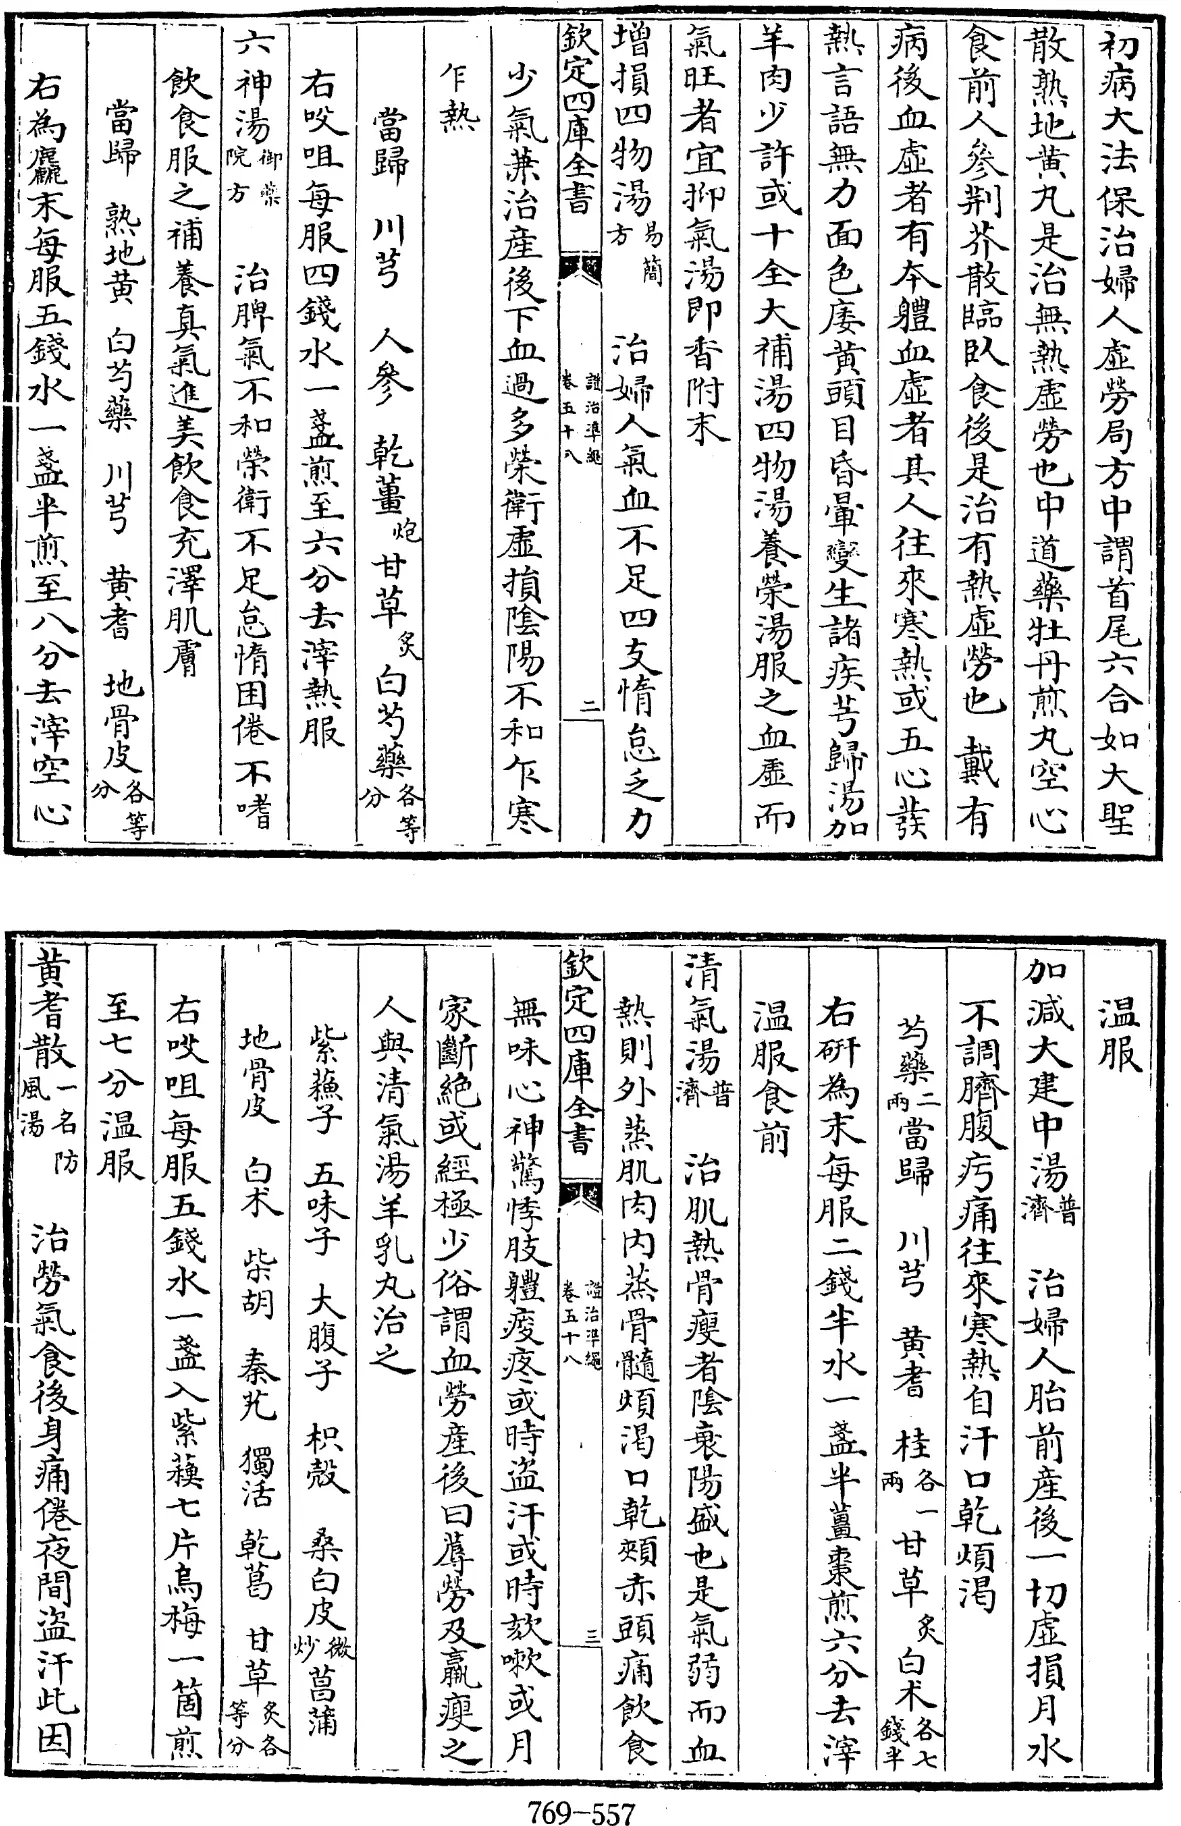 初病大法保治婦人虛勞局方中謂首尾六合如大聖
散熟地黄丸是治無熱虛勞也中道藥牡丹煎丸空心
食前人參荆芥散臨臥食後是治有熱虛勞也 戴有
病後血虛者有本體血虛者其人往來寒熱或五心發
熱言語無力面色痿黄頭目昏暈變生諸疾芎歸湯加
羊肉少許或十全大補湯四物湯養榮湯服之血虛而
氣旺者宜抑氣湯即香附末
增損四物湯易簡方 治婦人氣血不足四支惰怠乏力
欽定四庫全書 證治準繩 卷五十八 二
少氣兼治產後下血過多榮衛虛損陰陽不和乍寒
乍熱
當歸 川芎 人參 乾薑炮 甘草炙 白芍藥各等分
右㕮咀每服四錢水一盞煎至六分去滓熱服
六神湯御藥院方 治脾氣不和榮衛不足怠惰困倦不嗜
飲食服之補養真氣進美飲食充澤肌膚
當歸 熟地黄 白芍藥 川芎 黄耆 地骨皮各等分
右為麤末每服五錢水一盞半煎至八分去滓空心
温服
加減大建中湯普濟 治婦人胎前產後一切虛損月水
不調臍腹㽱痛往來寒熱自汗口乾煩渴
芍藥二兩 當歸 川芎 黄耆 桂各一兩 甘草炙 白术各七錢半
右研為末每服二錢半水一盞半薑棗煎六分去滓
温服食前
清氣湯普濟 治肌熱骨瘦者陰衰陽盛也是氣弱而血
熱則外蒸肌肉内蒸骨髓煩渴口乾頰赤頭痛飲食
欽定四庫全書 證治準繩 卷五十八 三
無味心神驚悸肢體痠疼或時盗汗或時欬嗽或月
家斷絶或經極少俗謂血勞產後曰蓐勞及羸瘦之
人與清氣湯羊乳丸治之
紫蘓子 五味子 大腹子 枳殻 桑白皮微炒 菖蒲
地骨皮 白术 柴胡 秦艽 獨活 乾葛 甘草炙各等分
右㕮咀每服五錢水一盞入紫蘓七片烏梅一箇煎
至七分温服
黄耆散一名防風湯 治勞氣食後身痛倦夜間盗汗此因
769-557